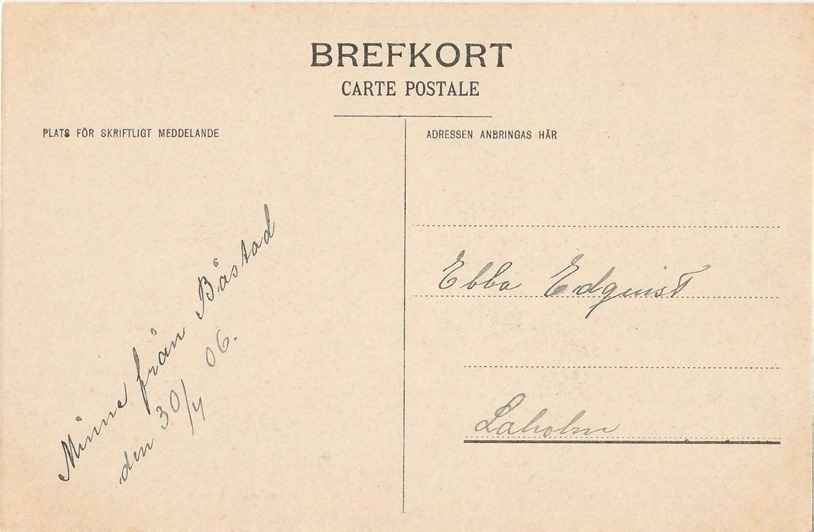 BREFKORT
CARTE POSTALE
PLATS FÖR SKRIFTLIGT MEDDELANDE
ADRESSEN ANBRINGAS HÄR
Minne från Båstad
den 30/4 06.
Ebba Edquist
Laholm